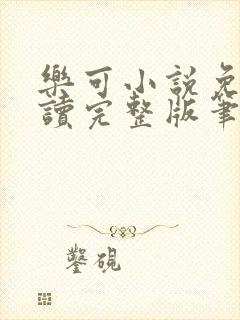 樂可小說免
讀完整版筆
鑿硯